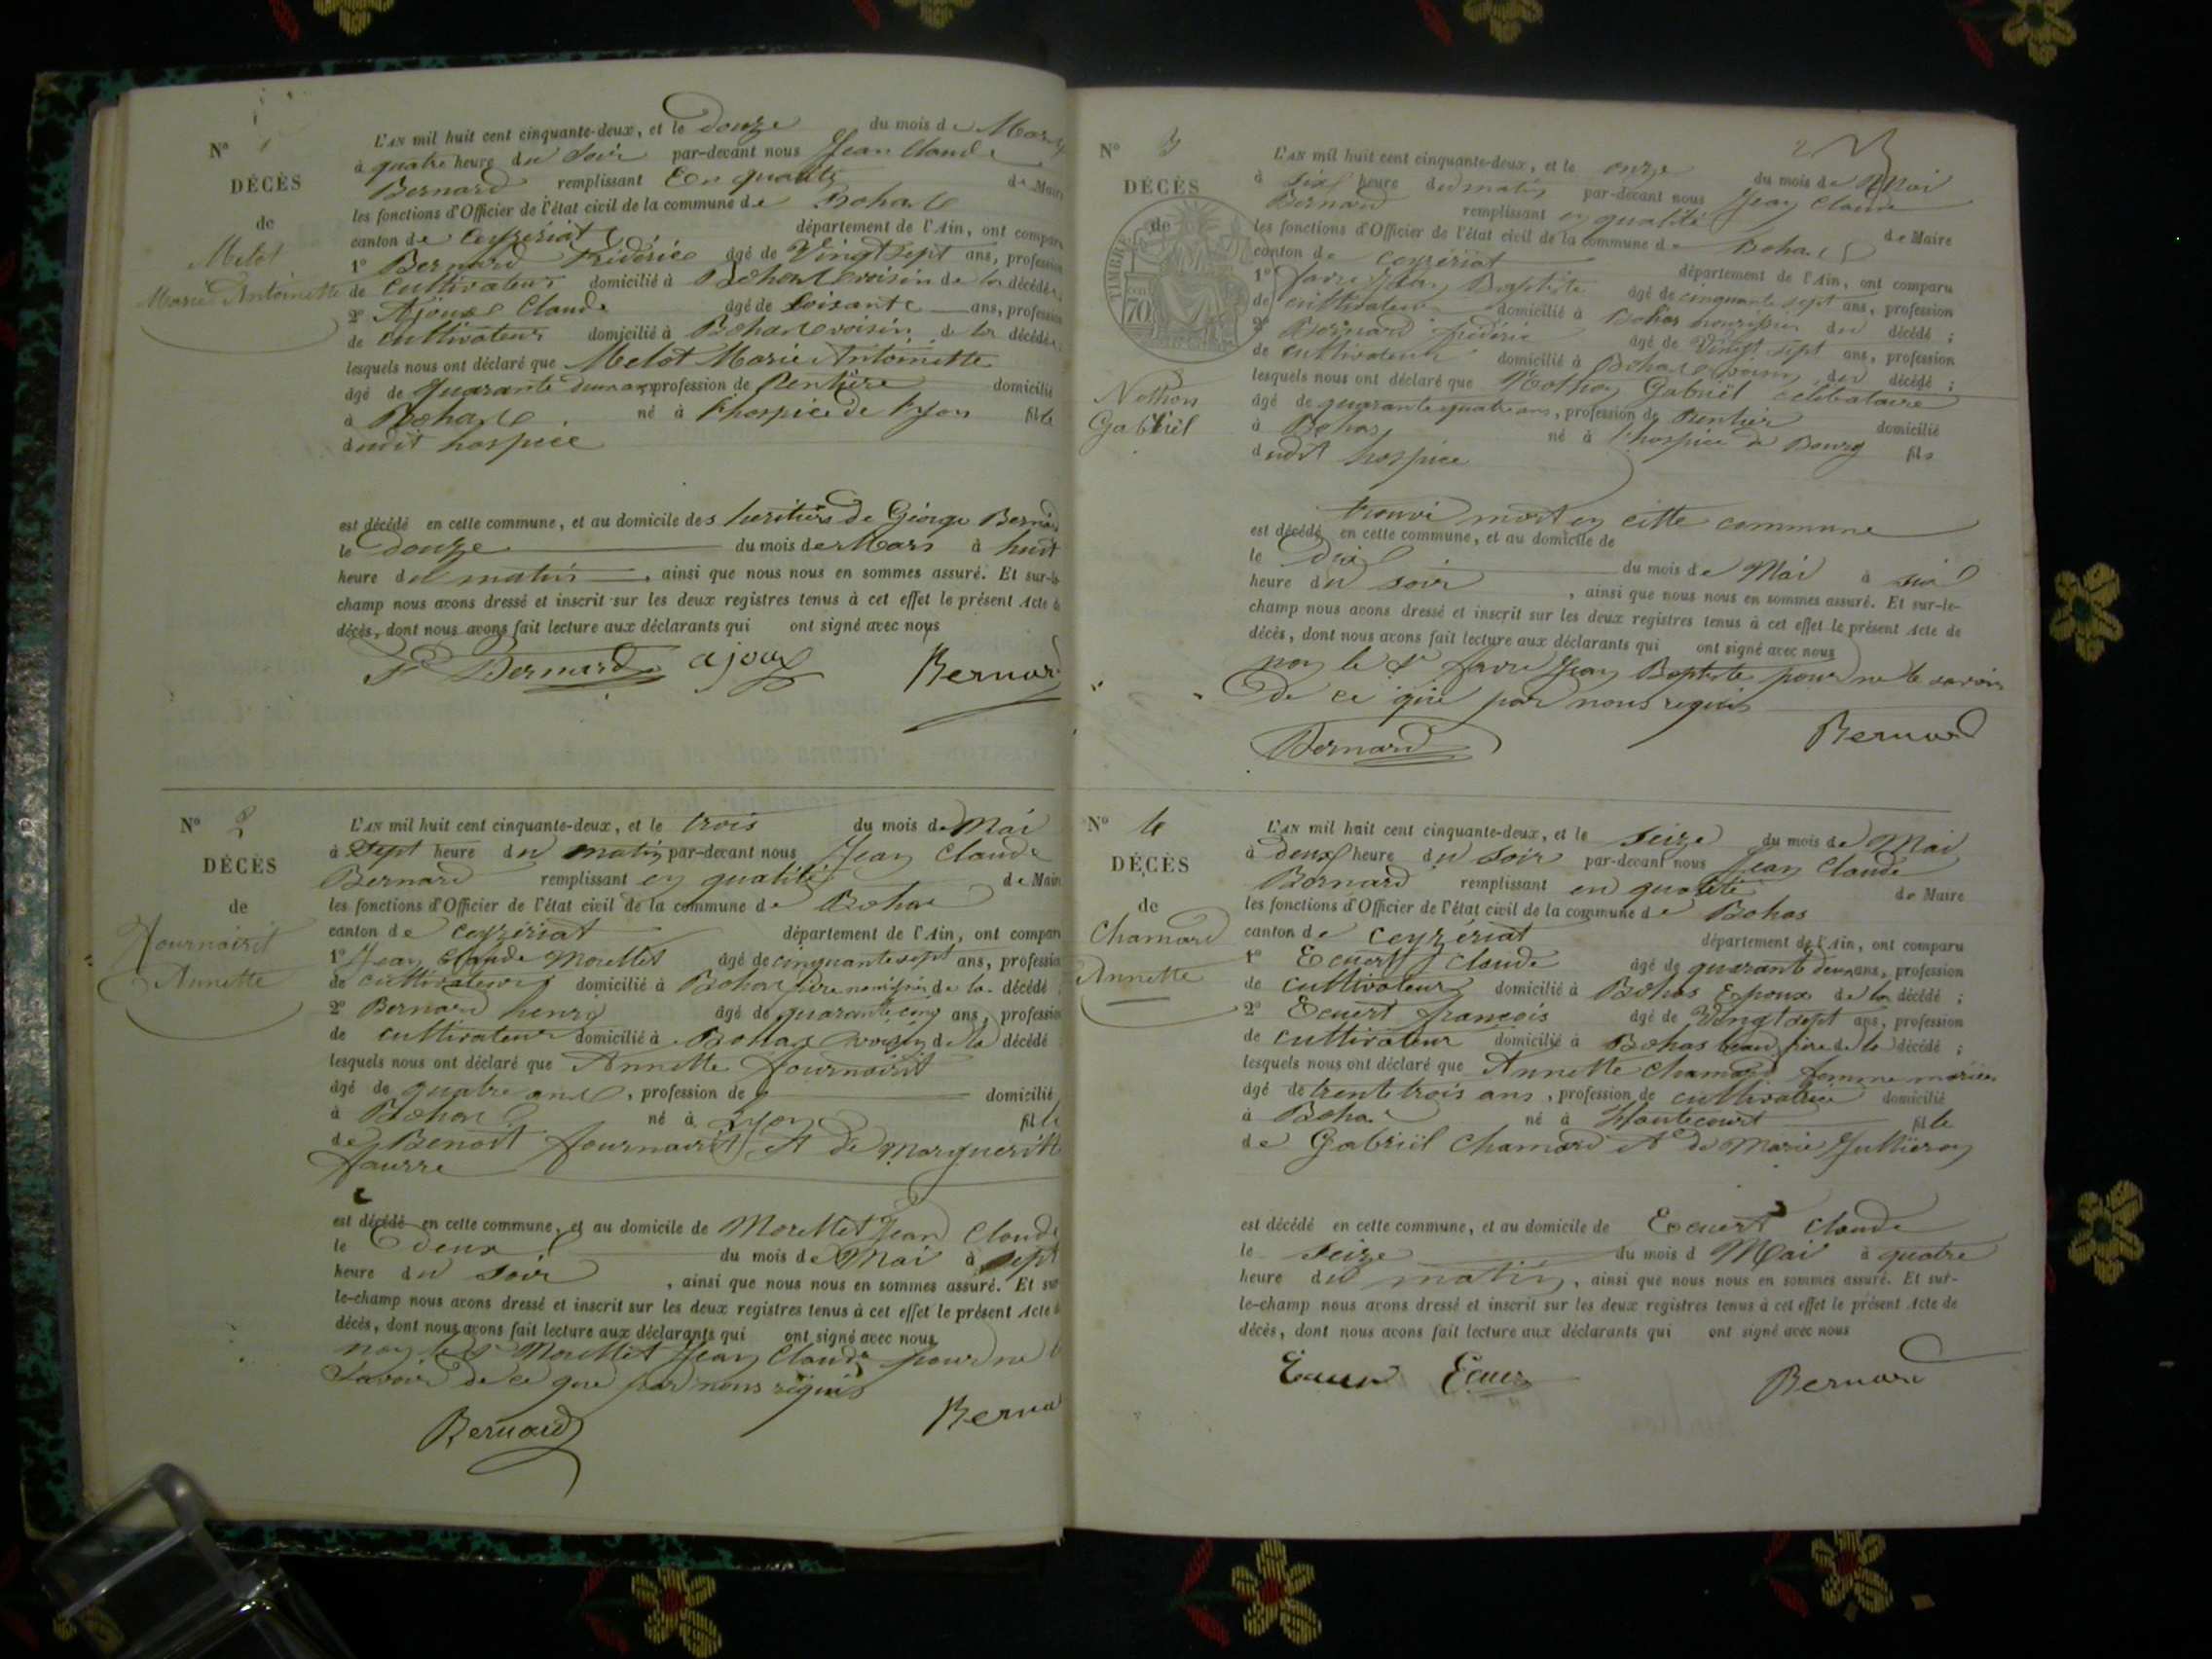 N° 1
DÉCÈS
de
Melot
Marie Antoinette
L'AN mil huit cent cinquante-deux, et le douze du mois de Mars
à quatre heure du Soir par-devant nous Jean Claude
Bernard remplissant En qualité de Maire
les fonctions d'Officier de l'état civil de la commune de Bohas
canton de Ceyzériat département de l'Ain, ont comparu
1° Bernard Frédéric âgé de Vingt Sept ans, profession
de Cultivateur domicilié à Bohas voisin de la décédée
2° Ajoux Claude âgé de Soixante ans, profession
de Cultivateur domicilié à Bohas voisin de la décédée
lesquels nous ont déclaré que Melot Marie Antoinette
âgé de quarante deux ans, profession de Rentière domicilié
à Bohas né à l'hospice de Lyon fille
dudit hospice
est décédé en cette commune, et au domicile des heritiers de George Bernard
le douze du mois de Mars à huit
heure du matin, ainsi que nous nous en sommes assuré. Et sur-le-
champ nous avons dressé et inscrit sur les deux registres tenus à cet effet le présent Acte de
décès, dont nous avons fait lecture aux déclarants qui ont signé avec nous
Fc Bernard ajoux Bernard
N° 2
DÉCÈS
de
Annette
L'AN mil huit cent cinquante-deux, et le trois du mois de Mai
à Sept heure du matin par-devant nous Jean Claude
Bernard remplissant en qualité de Maire
les fonctions d'Officier de l'état civil de la commune de Bohas
canton de ceyzériat département de l'Ain, ont comparu
1° Jean Claude Morellet âgé de cinquante sept ans, profession
de cultivateur domicilié à Bohas père nourissier de la décédé
2° Bernard henry âgé de quarante cinq ans, profession
de cultivateur domicilié à Bohas voisin de la décédé
lesquels nous ont déclaré que Annette fournairit
âgé de quatre ans, profession de domicilié
à Bohas né à Lyon fille
de Benoit fournairit et de Margueritte
faurre
est décédé en cette commune, et au domicile de Morellet Jean Claude
le deux du mois de Mai à sept
heure du soir, ainsi que nous nous en sommes assuré. Et sur
le-champ nous avons dressé et inscrit sur les deux registres tenus à cet effet le présent Acte de
décès, dont nous avons fait lecture aux déclarants qui ont signé avec nous
non le Sr Morellet Jean Claude pour ne le
Savoir de ce que par nous requis
Bernard Bernard
2
N° 3
DÉCÈS
de
TIMBRE
70
Nothon
Gabriël
L'AN mil huit cent cinquante-deux, et le onze du mois de Mai
à Six heure du matin par-devant nous Jean Claude
Bernard remplissant en qualité de Maire
les fonctions d'Officier de l'état civil de la commune de Bohas
canton de ceyzériat département de l'Ain, ont comparu
1° favre Jean Baptiste âgé de cinquante sept ans, profession
de cultivateur domicilié à Bohas nourissier du décédé ;
2° Bernard frédéric âgé de Vingt Sept ans, profession
de cultivateur domicilié à Bohas voisin du décédé ;
lesquels nous ont déclaré que Nothon Gabriël celibataire
âgé de quarante quatre ans, profession de Rentier domicilié
à Bohas né à l'hospice de Bourg fils
dudit hospice
trouvé mort en cette commune
est décédé en cette commune, et au domicile de
le Dix du mois de Mai à six
heure du soir, ainsi que nous nous en sommes assuré. Et sur-le-
champ nous avons dressé et inscrit sur les deux registres tenus à cet effet le présent Acte de
décès, dont nous avons fait lecture aux déclarants qui ont signé avec nous
non le Sr favre Jean Baptiste pour ne le savoir
De ce que par nous requis
Bernard Bernard
N° 4
DÉCÈS
de
Chamard
Annette
L'AN mil huit cent cinquante-deux, et le Seize du mois de Mai
à deux heure du Soir par-devant nous Jean Claude
Bernard remplissant en qualité de Maire
les fonctions d'Officier de l'état civil de la commune de Bohas
canton de ceyzériat département de l'Ain, ont comparu
1° Ecuert Claude âgé de quarante deux ans, profession
de cultivateur domicilié à Bohas Epoux de la décédé ;
2° Ecuert françois âgé de Vingt sept ans, profession
de cultivateur domicilié à Bohas beau frère de la décédé ;
lesquels nous ont déclaré que Annette Chamard femme mariée
âgé de trente trois ans, profession de cultivatrice domicilié
à Bohas né à Hautecourt fille
de Gabriël Chamard et de Marie Jullieron
est décédé en cette commune, et au domicile de Ecuert Claude
le Seize du mois d Mai à quatre
heure du matin, ainsi que nous nous en sommes assuré. Et sur-
le-champ nous avons dressé et inscrit sur les deux registres tenus à cet effet le présent Acte de
décès, dont nous avons fait lecture aux déclarants qui ont signé avec nous
Bernard